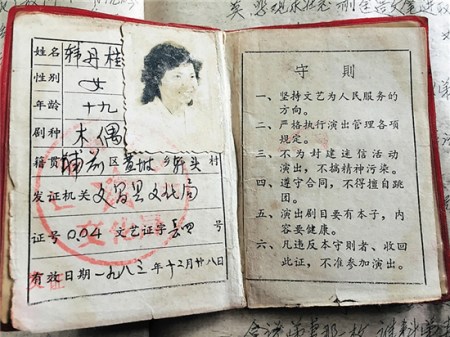 姓名 韩丹桂
性别 女
年龄 十九
剧种 木偶
籍贯 铺前区 乡 村
发证机关 文昌县文化局
证号 004 文艺证字 号
有效日期 一九八三年十二月廿八日
守则
一、坚持文艺为人民服务的
方向。
二、严格执行演出管理各项
规定。
三、不为封建迷信活动
演出，不搞精神污染。
四、遵守合同，不得擅自跳
团。
五、演出剧目要有本子，内
容要健康。
六、凡违反本守则者、收回
此证，不准参加演出。